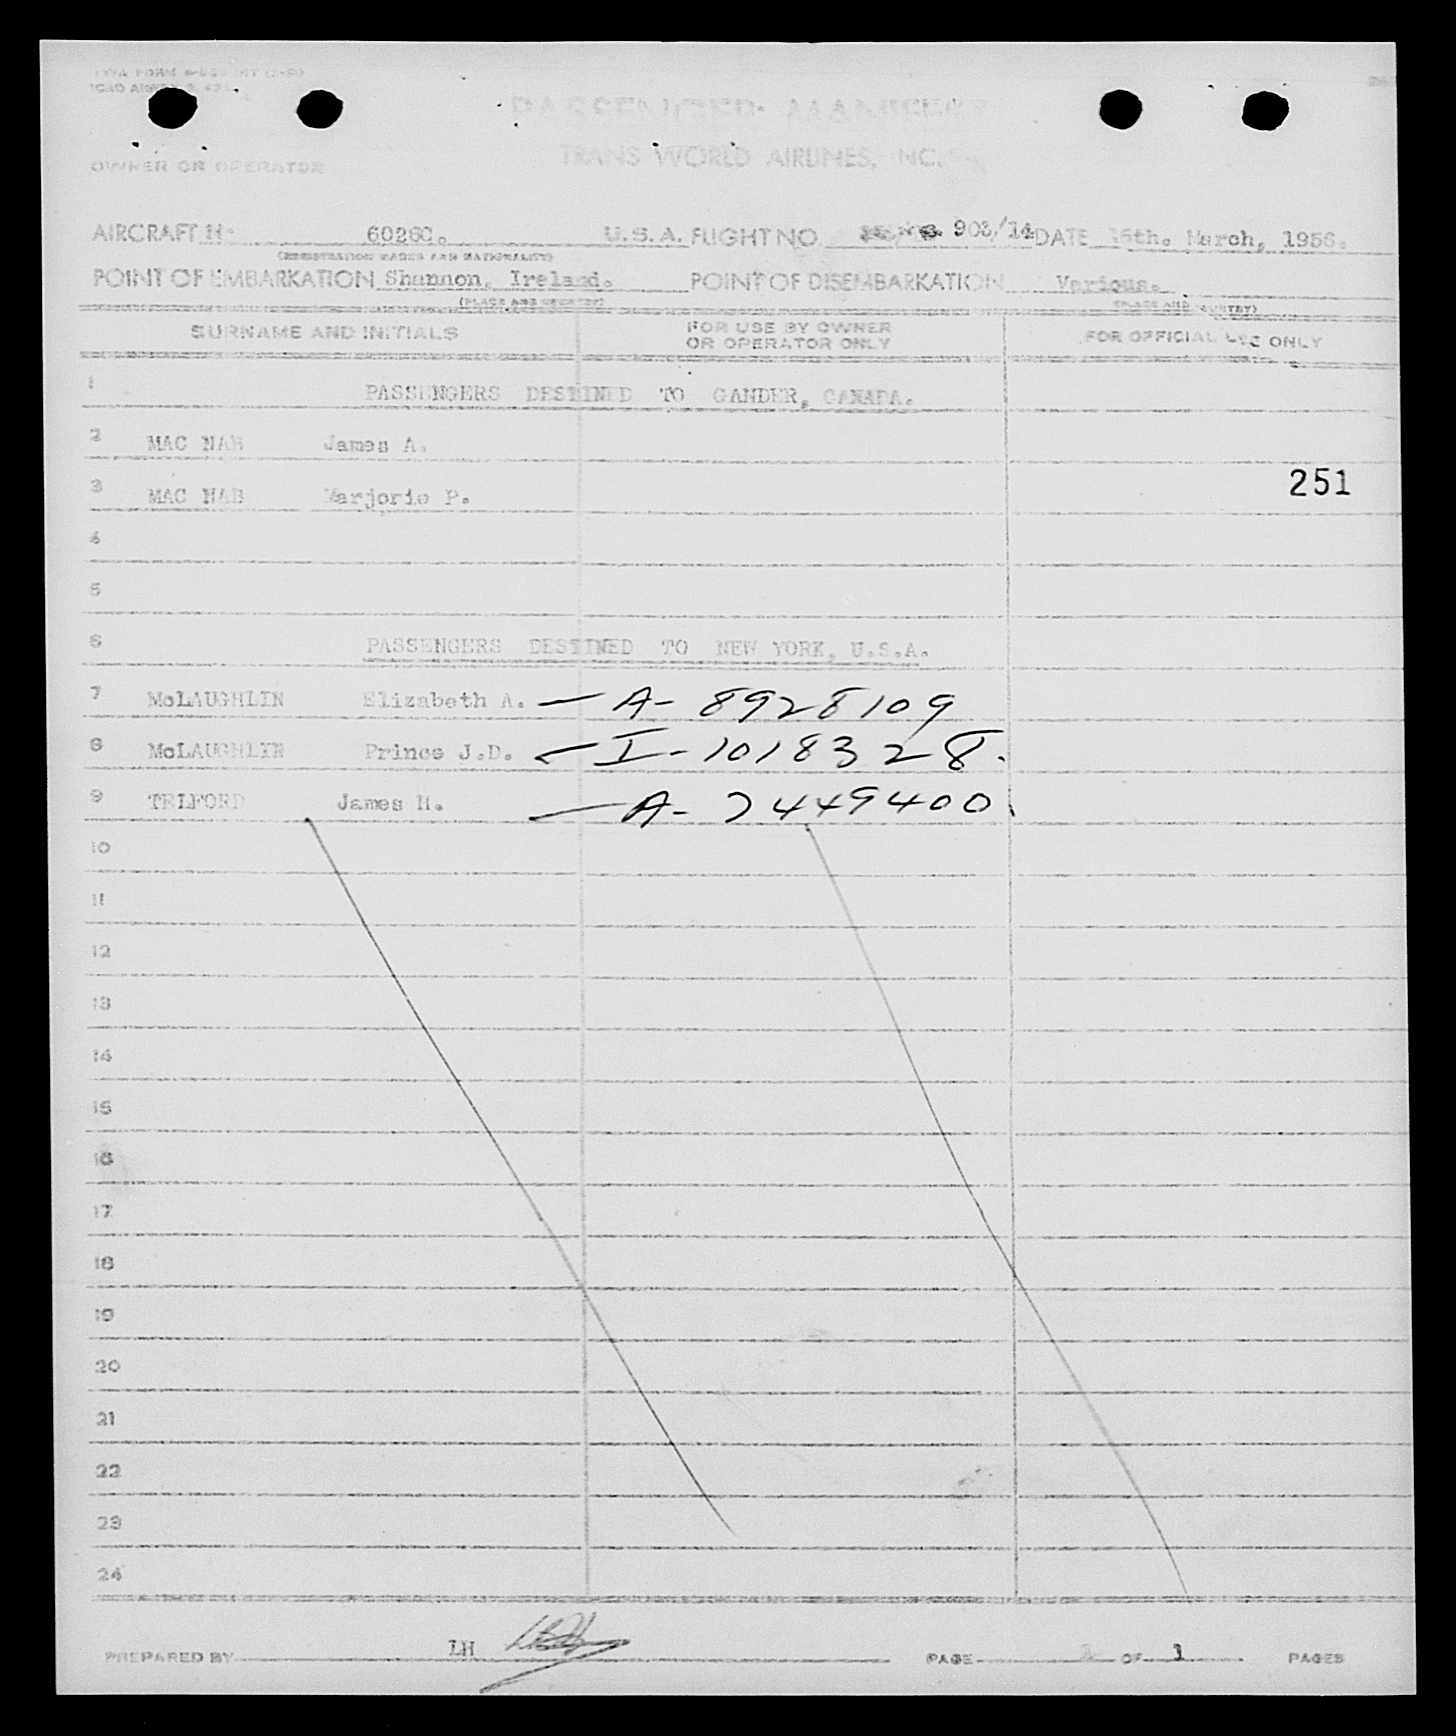 PASSENGER MANIFEST
TRANS WORLD AIRLINES, INC.
OWNER OR OPERATOR
AIRCRAFT N- 60260. U.S.A. FLIGHT NO 903/14 DATE 16th. March, 1956.
(REGISTRATION MARKS AND NATIONALITY)
POINT OF EMBARKATION Shannon, Ireland. POINT OF DISEMBARKATION Various.
(PLACE AND COUNTRY) (PLACE AND COUNTRY)
SURNAME AND INITIALS FOR USE BY OWNER OR OPERATOR ONLY FOR OFFICIAL USE ONLY
1 PASSENGERS DESTINED TO GANDER, CANADA.
2 MAC NAB James A.
3 MAC NAB Marjorie P.
251
4
5
6 PASSENGERS DESTINED TO NEW YORK, U.S.A.
7 McLAUGHLIN Elizabeth A. — A- 8928109
8 McLAUGHLIN Prince J.D. — I- 1018328.
9 TELFORD James H. — A- 7449400.
10
11
12
13
14
15
16
17
18
19
20
21
22
23
24
PREPARED BY LH PAGE OF 1 PAGES